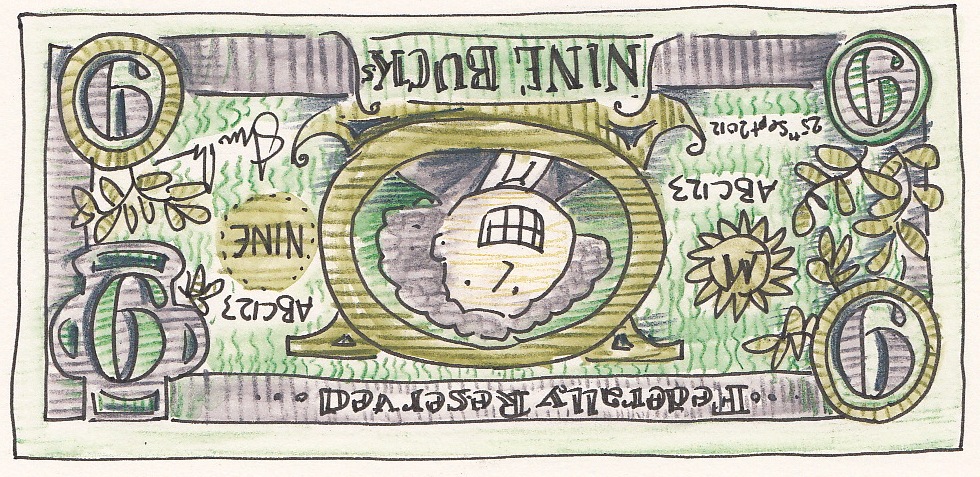 Federally Reserved
9
9
M
ABC123
ABC123
NINE
25th Sept 2012
9
NINE BUCKs
9